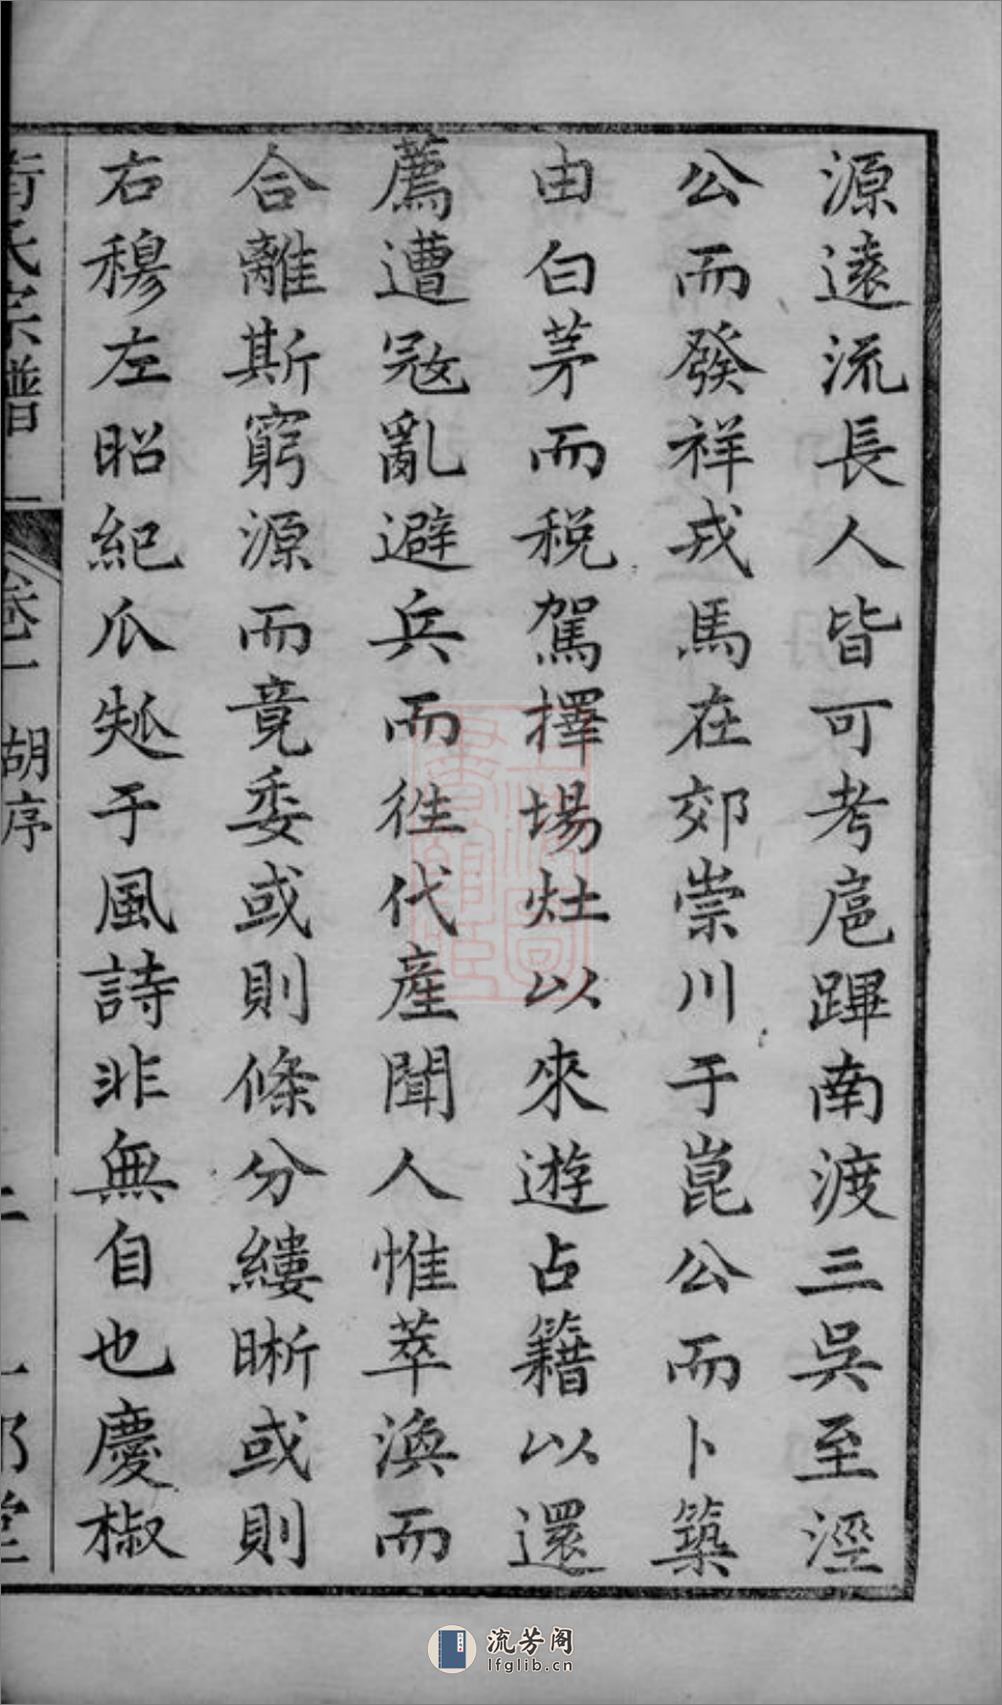 源遠流長人皆可考扈蹕南渡三吳至涇
公而發祥戎馬在郊崇川于崑公而卜築
由白茅而稅駕擇場灶以來遊占籍以還
薦遭冦亂避兵而徃代產聞人惟萃渙而
合離斯窮源而竟委或則條分縷晰或則
右穆左昭紀瓜瓞于風詩非無自也慶椒
氏宗譜
卷一
胡序
二
流芳阁
lfglib.cn